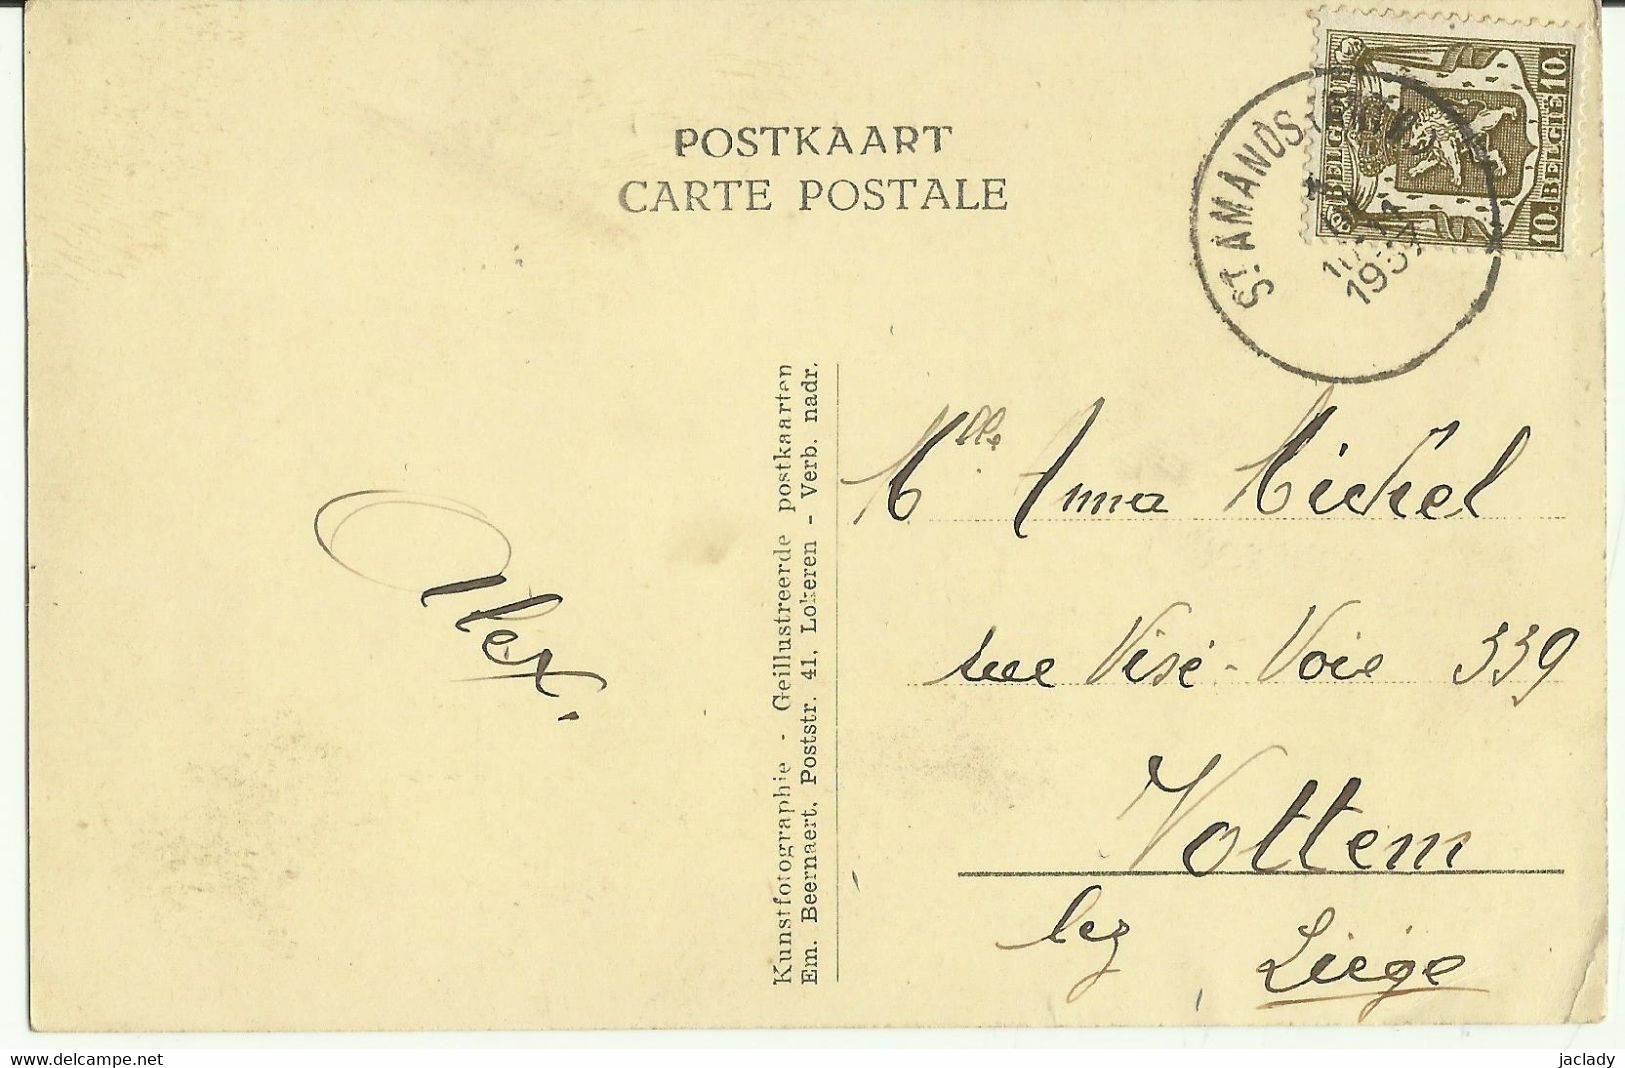 POSTKAART
CARTE POSTALE
BELGIQUE 10.
10. BELGIE 10.
ST. AMANDS
193
Kunstfotographie - Geillustreerde postkaarten
Em. Beernaert, Poststr. 41, Lokeren - Verb. nadr.
Alex.
Mlle Anna Michel
rue Visé-Voie 339
Vottem
lez
Liège
www.delcampe.net
jaclady